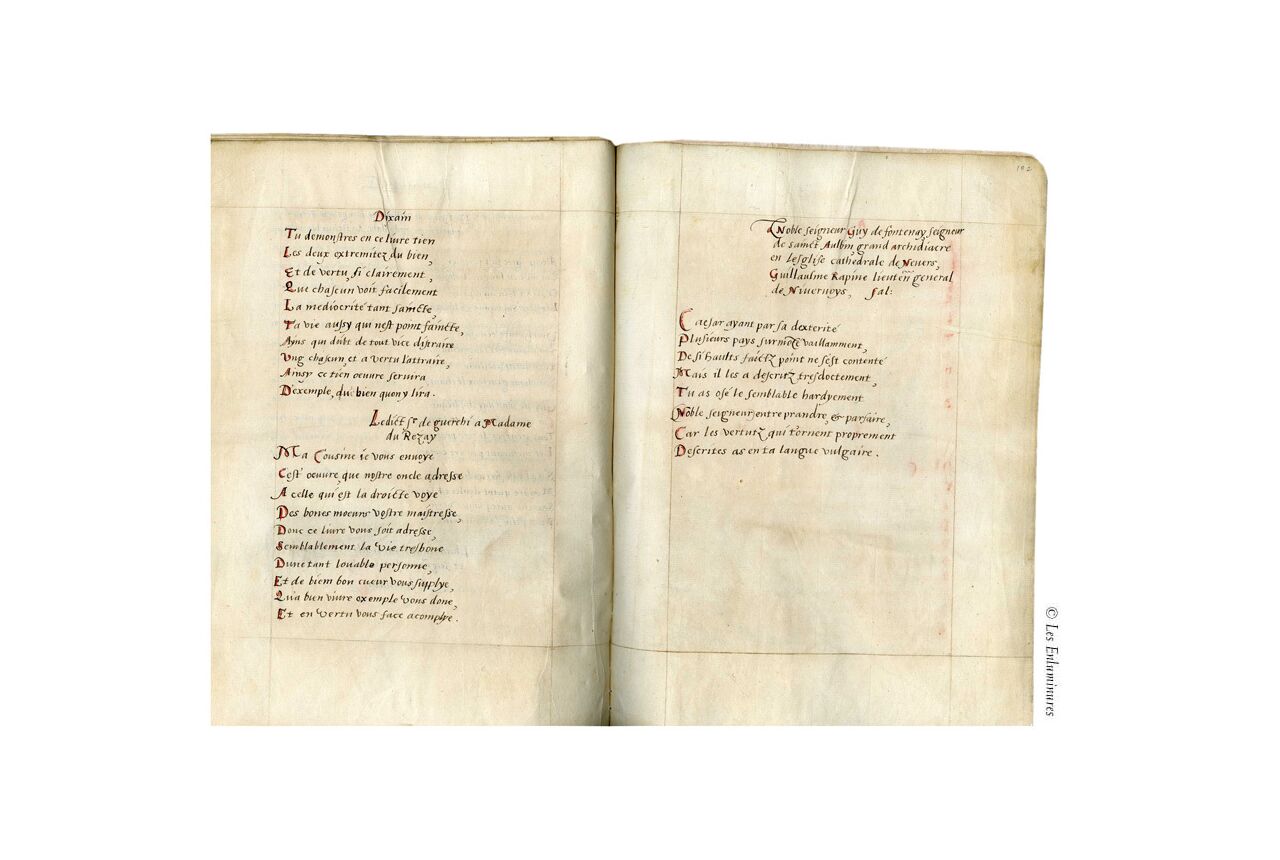 Dixain
Tu demonstres en ce livre tien
Les deux extremitez du bien,
Et de vertu si clairement,
Que chascun voit facilement
La mediocrité tant saincte,
Ta vie aussy qui nest point faincte,
Ayns qui dubt de tout vice distraire
Ung chascun, et a vertu l'attraire,
Ainsy ce tien oeuvre servira
D'exemple, que bien quony lira.
Ledict sr de guerchi a Madame
du Rezay
Ma Cousine ie vous envoye
Cest' oeuvre, que nostre oncle adresse
A celle qui est la droicte voye
Des bones moeurs vostre maistresse,
Donc ce livre vous soit adresse,
Semblablement la vie tresbone
Dune tant louable personne,
Et de biem bon cueur vous supplye,
Qu'a bien vivre exemple vous done,
Et en vertu vous face acomplye.
102
A Noble seigneur Guy de fontenay seigneur
de sainct Aulbin grand archidiacre
en lesglise cathedrale de Nevers,
Guillaulme Rapine lieuten general
de Nivernoys, sal:
Caesar ayant par sa dexterité
Plusieurs pays surmōté vaillamment,
De si haults faictz point ne sest contenté
Mais il les a descritz tresdoctement,
Tu as osé le semblable hardyement
Noble seigneur entreprandre, & parfaire,
Car les vertutz qui t'ornent proprement
Descrites as en ta langue vulgaire.
© Les Enluminures